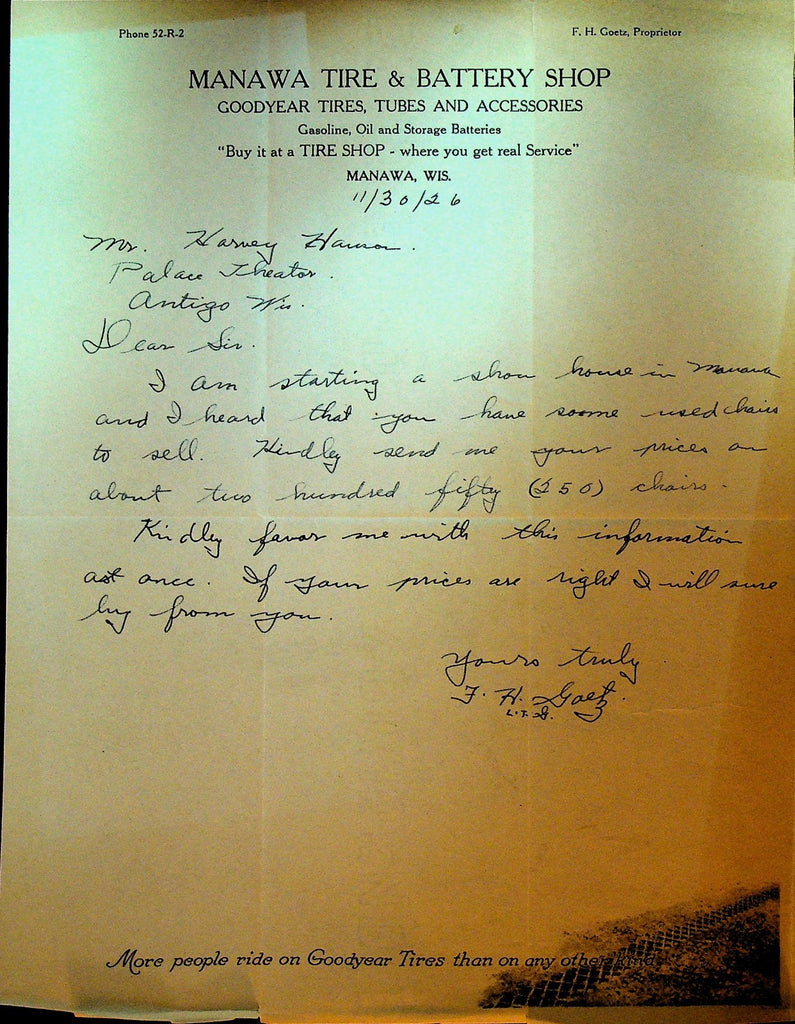 Phone 52-R-2
F. H. Goetz, Proprietor
MANAWA TIRE & BATTERY SHOP
GOODYEAR TIRES, TUBES AND ACCESSORIES
Gasoline, Oil and Storage Batteries
"Buy it at a TIRE SHOP - where you get real Service"
MANAWA, WIS.
11/30/26
Mr. Harvey Hanson.
Palace Theator.
Antigo Wis.
Dear Sir.
I am starting a show house in Manawa
and I heard that you have soome used chairs
to sell. Kindley send me your prices on
about two hundred fifty (250) chairs.
Kindley favor me with this information
at once. If your prices are right I will sure
buy from you.
Yours truly
F. H. Goetz.
L.F.G.
More people ride on Goodyear Tires than on any other kind